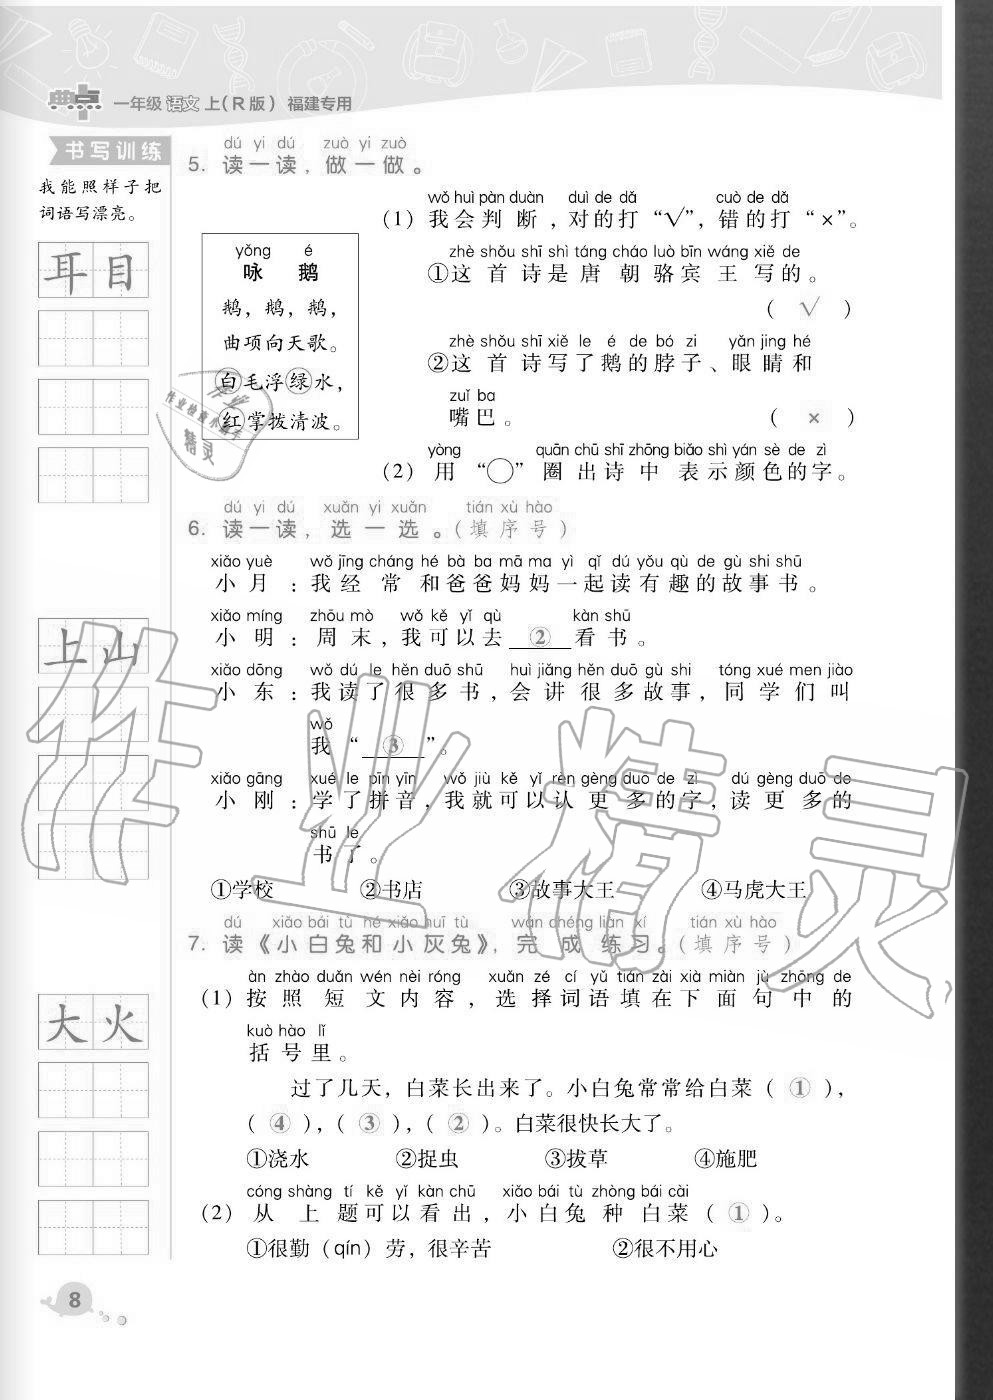 典点 一年级 语文 上(R版) 福建专用
书写训练
我能照样子把
词语写漂亮。
耳目
上山
大火
dú yi dú zuò yi zuò
5. 读一读，做一做。
yǒng é
咏 鹅
鹅，鹅，鹅，
曲项向天歌。
白毛浮绿水，
红掌拨清波。
wǒ huì pàn duàn duì de dǎ cuò de dǎ
(1) 我会判断，对的打“√”，错的打“×”。
zhè shǒu shī shì táng cháo luò bīn wáng xiě de
①这首诗是唐朝骆宾王写的。
( √ )
zhè shǒu shī xiě le é de bó zi yǎn jing hé
②这首诗写了鹅的脖子、眼睛和
zuǐ ba
嘴巴。 ( × )
yòng quān chū shī zhōng biǎo shì yán sè de zì
(2) 用“○”圈出诗中表示颜色的字。
dú yi dú xuǎn yi xuǎn tián xù hào
6. 读一读，选一选。(填序号)
xiǎo yuè wǒ jīng cháng hé bà ba mā ma yì qǐ dú yǒu qù de gù shi shū
小月：我经常和爸爸妈妈一起读有趣的故事书。
xiǎo míng zhōu mò wǒ kě yǐ qù kàn shū
小明：周末，我可以去 ② 看书。
xiǎo dōng wǒ dú le hěn duō shū huì jiǎng hěn duō gù shi tóng xué men jiào
小东：我读了很多书，会讲很多故事，同学们叫
wǒ
我“ ③ ”。
xiǎo gāng xué le pīn yīn wǒ jiù kě yǐ rèn gèng duō de zì dú gèng duō de
小刚：学了拼音，我就可以认更多的字，读更多的
shū le
书了。
①学校 ②书店 ③故事大王 ④马虎大王
dú xiǎo bái tù hé xiǎo huī tù wán chéng liàn xí tián xù hào
7. 读《小白兔和小灰兔》，完成练习。(填序号)
àn zhào duǎn wén nèi róng xuǎn zé cí yǔ tián zài xià miàn jù zhōng de
(1) 按照短文内容，选择词语填在下面句中的
kuò hào lǐ
括号里。
过了几天，白菜长出来了。小白兔常常给白菜( ① )，
( ④ )，( ③ )，( ② )。白菜很快长大了。
①浇水 ②捉虫 ③拔草 ④施肥
cóng shàng tí kě yǐ kàn chū xiǎo bái tù zhòng bái cài
(2) 从上题可以看出，小白兔种白菜( ① )。
①很勤(qín)劳，很辛苦 ②很不用心
8
作业精灵
作业
作业检查小助手
精灵